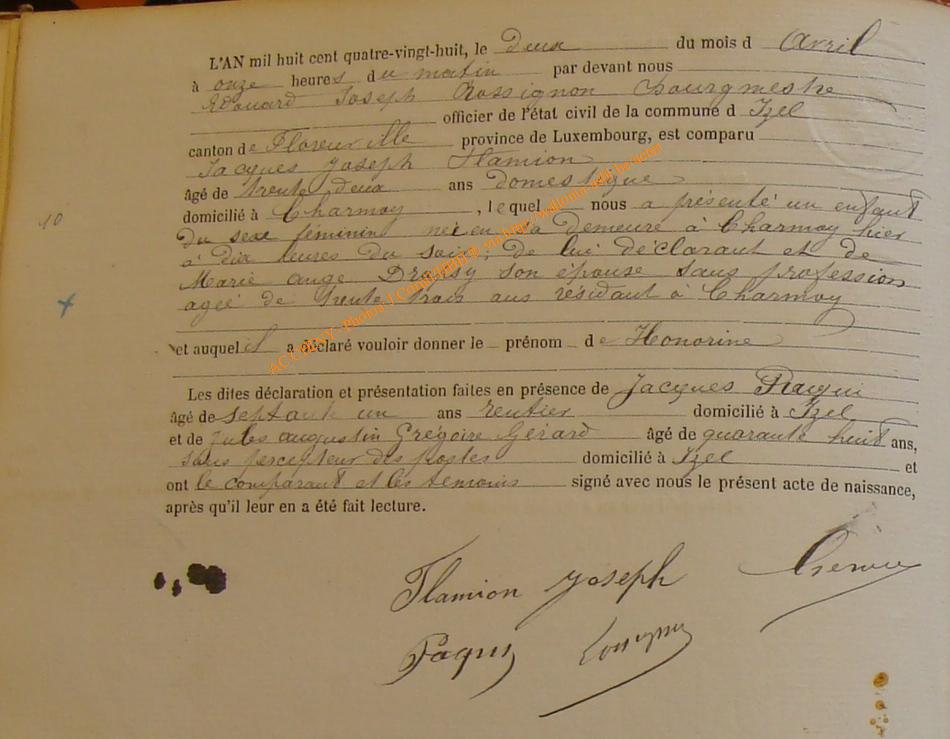 L'AN mil huit cent quatre-vingt-huit, le deux du mois d Avril
à onze heures du matin par devant nous
Edouard Joseph Rossignon Bourgmestre
officier de l'état civil de la commune d Izel
canton de Florenville province de Luxembourg, est comparu
Jacques Joseph Flamion
âgé de trente deux ans domestique
domicilié à Charmoy, lequel nous a présenté un enfant
10
du sexe féminin née en sa demeure à Charmoy hier
à dix heures du soir, de lui déclarant et de
Marie ange son épouse sans profession
agée de trente trois ans résidant à Charmoy
et auquel il a déclaré vouloir donner le prénom de Honorine
Les dites déclaration et présentation faites en présence de Jacques
âgé de septante un ans rentier domicilié à Izel
et de Jules augustin Grégoire Gérard âgé de quarante huit ans,
sous percepteur des postes domicilié à Izel et
ont le comparant et les témoins signé avec nous le présent acte de naissance,
après qu'il leur en a été fait lecture.
Flamion Joseph